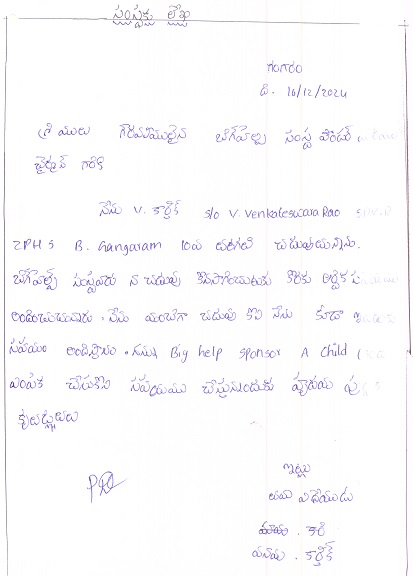 సంస్థకు లేఖ
గంగారం
ది. 10/12/2024
శ్రీ మురు గౌరవనీయులైన బిగ్‌హెల్ప్ సంస్థ ఫౌండర్
చైర్మన్ గారికి
నేను V. కార్తీక్ s/o V. Venkateswara Rao
ZPHS B. Gangaram 10వ తరగతి చదువుచున్నాను.
బిగ్‌హెల్ప్ సంస్థవారు నా చదువు కొనసాగించుటకు కొరకు ఆర్థిక
అందించుచున్నారు. నేను మంచిగా చదువు కొని నేను కూడా
సహయం అందిస్తాను. నన్ను Big help sponsor A child
ఎంపిక చేసుకొని సహయము చేస్తున్నందుకు హృదయ
కృతజ్ఞతలు
ఇట్లు
తమ విధేయుడు
కార్తీక్